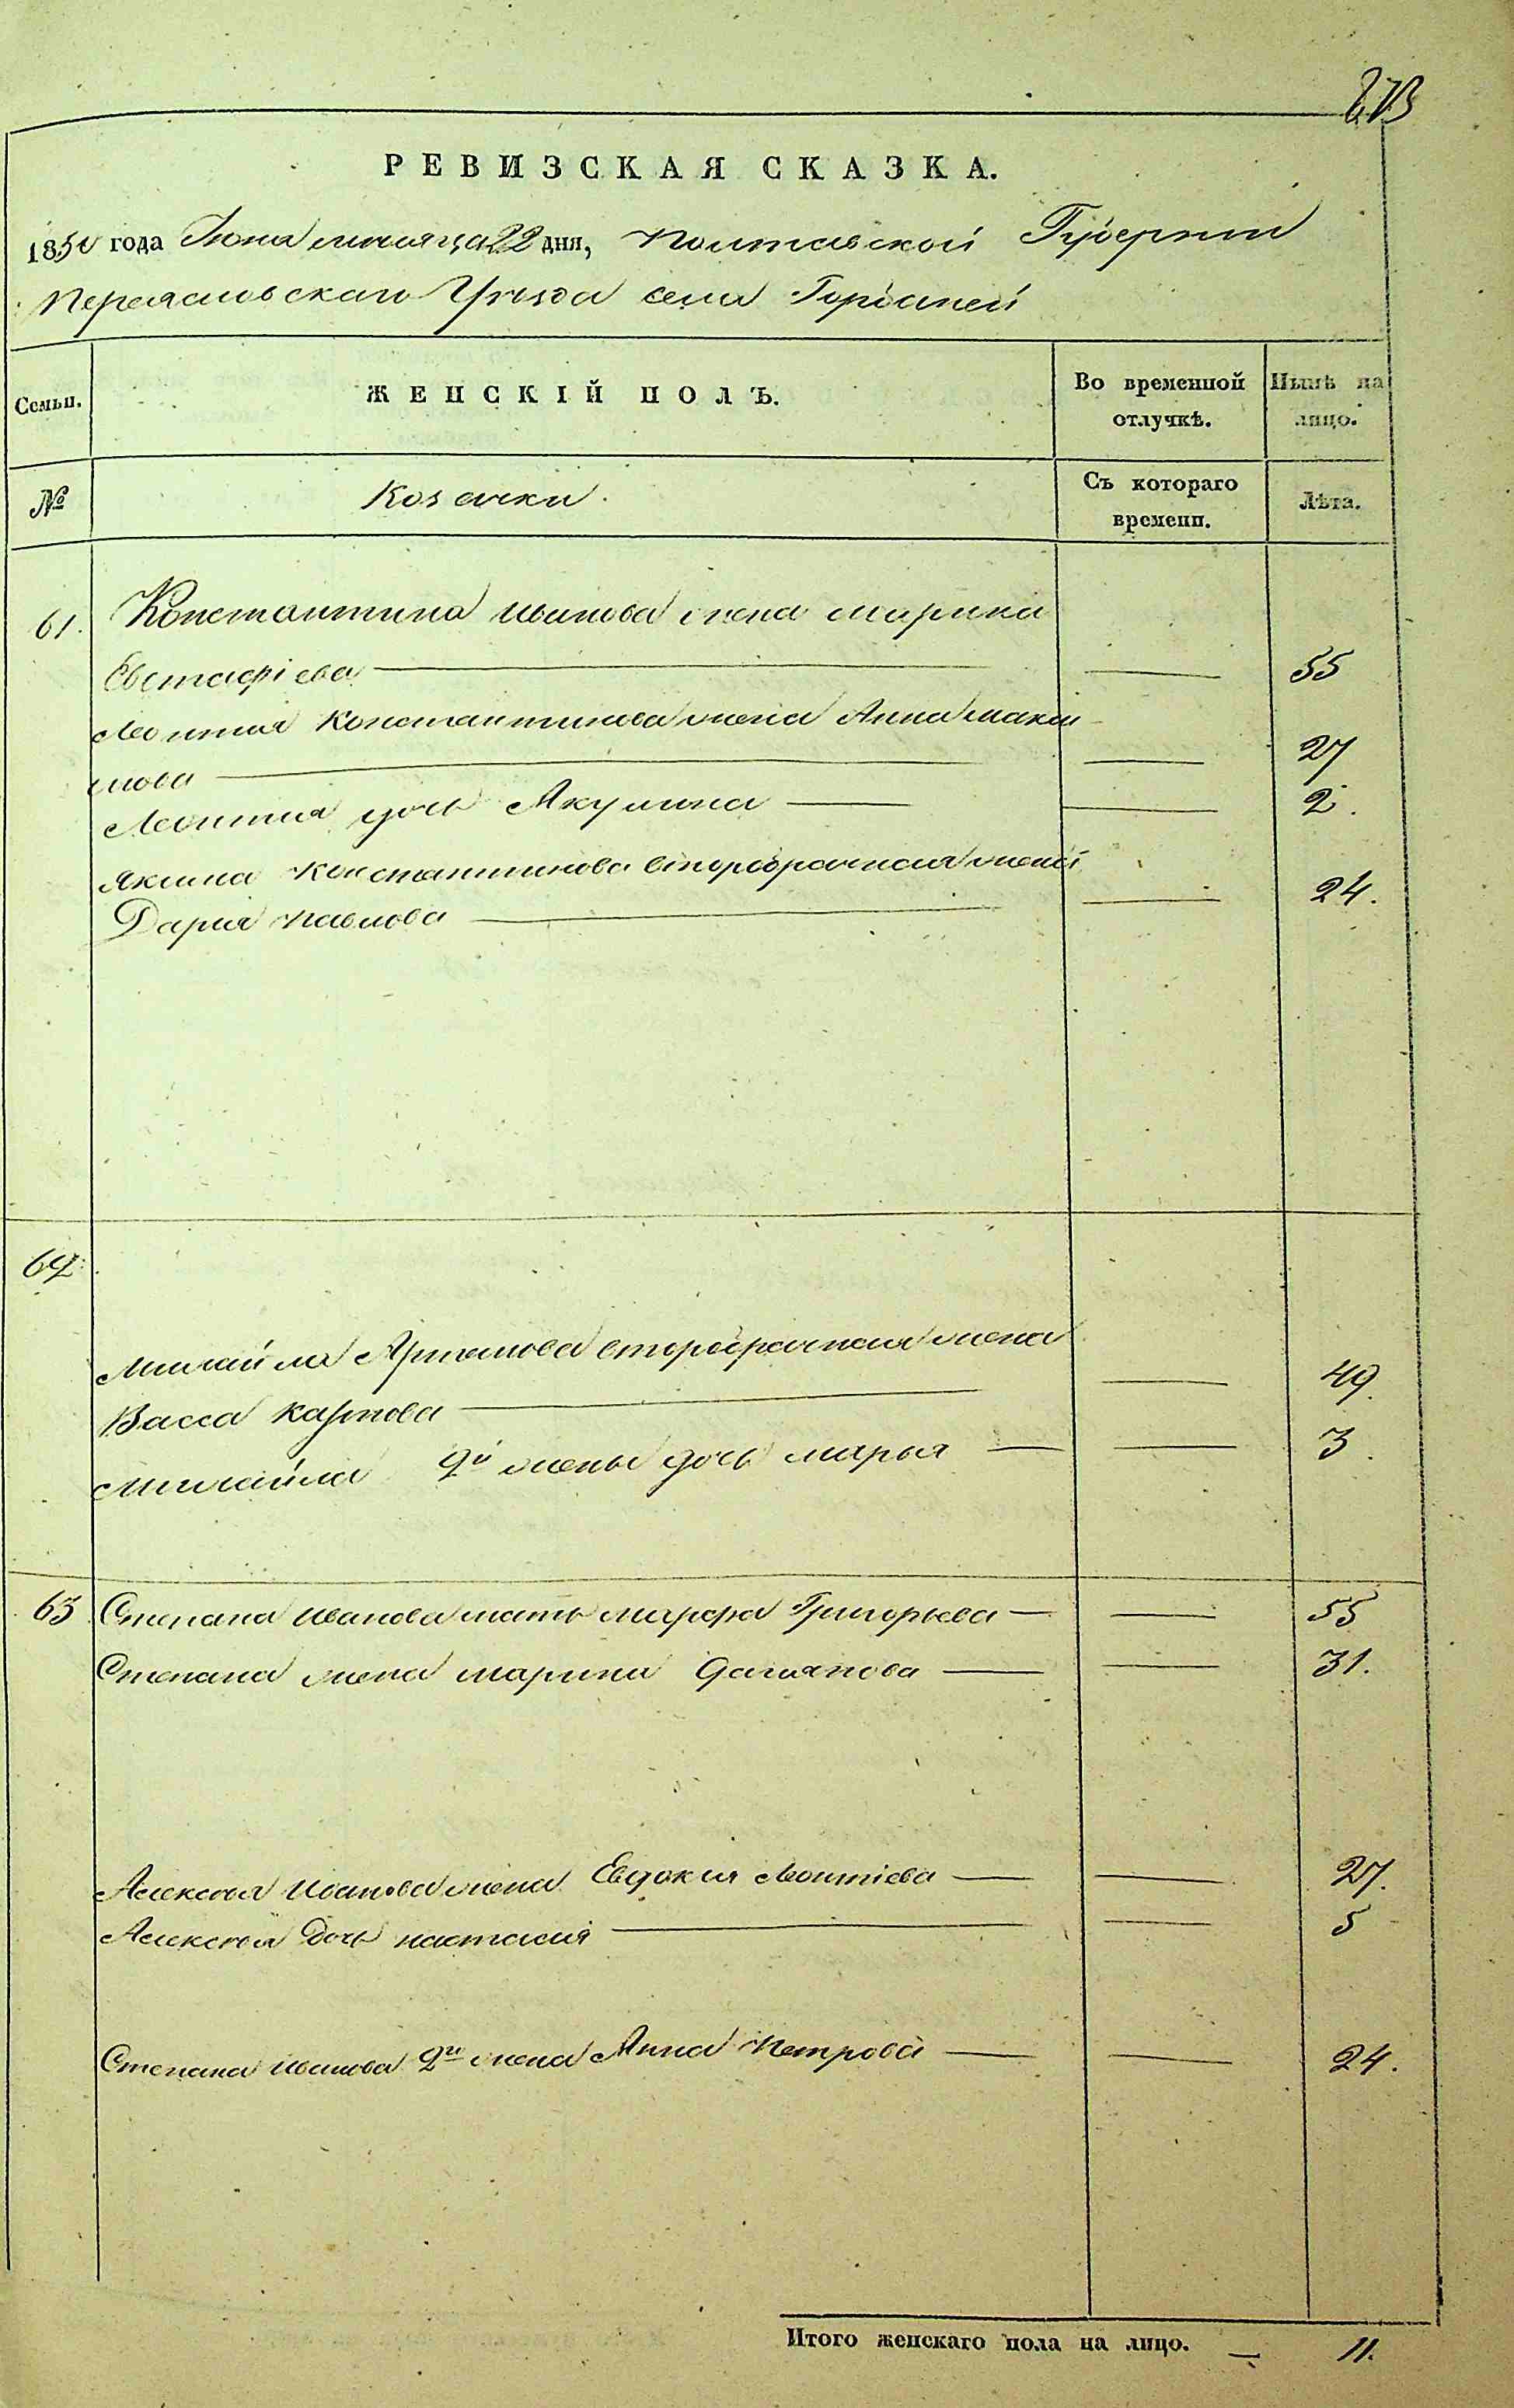 273
РЕВИЗСКАЯ СКАЗКА.
1850 года Июня месяца 22 дня, Полтавской Губернии
Переясловскаго Уезда села Горбаней
Семьи.
ЖЕНСКІЙ ПОЛЪ.
Во временной отлучкѣ.
Нынѣ на лицо.
№
Козачки.
Съ котораго времени.
Лѣта.
61. Константина Иванова жена Марина
Евстафіева — — 55
Леонтія Константинова жена Анна Макси
мова — — 27
Леонтия дочь Акулина — — 2.
Якима Константинова второбрачная жена
Дарія Павлова — — 24.
62.
Михайла Артемова второбрачная жена
Васса Карпова — — 49.
Михайла 2й жены дочь Марья — — 3.
63 Степана Иванова мать Марфа Григорьева — — 55
Степана жена Марина Дамянова — — 31.
Алексея Иванова жена Евдокия Леонтіева — — 27.
Алексея дочь Настасия — — 5
Степана Иванова 2я жена Анна Петрова — — 24.
Итого женскаго пола на лицо. — 11.